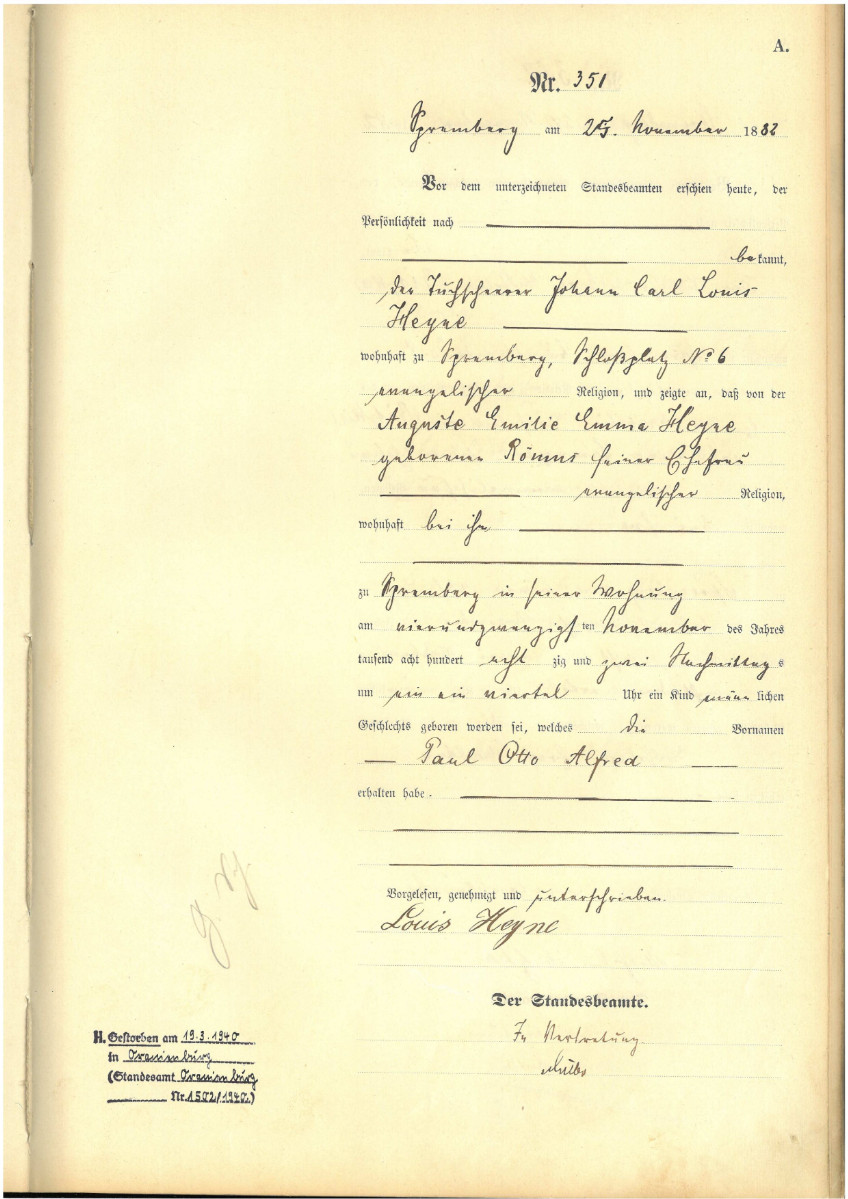 A.
Nr. 351
Spremberg am 25. November 1882
Vor dem unterzeichneten Standesbeamten erschien heute, der
Persönlichkeit nach
bekannt,
der Tuchscheerer Johann Carl Louis
Heyne
wohnhaft zu Spremberg, Schloßplatz No 6
evangelischer Religion, und zeigte an, daß von der
Auguste Emilie Emma Heyne
geborenen seiner Ehefrau
evangelischer Religion,
wohnhaft bei ihm
zu Spremberg in seiner Wohnung
am vierundzwanzigsten November des Jahres
tausend acht hundert achtzig und zwei Nachmittags
um ein ein viertel Uhr ein Kind männlichen
Geschlechts geboren worden sei, welches die Vornamen
Paul Otto Alfred
erhalten habe.
Vorgelesen, genehmigt und unterschrieben.
Louis Heyne
Der Standesbeamte.
In Vertretung
H. Gestorben am 19.3.1940
in Oranienburg
(Standesamt Oranienburg
Nr. 1502/1940.)